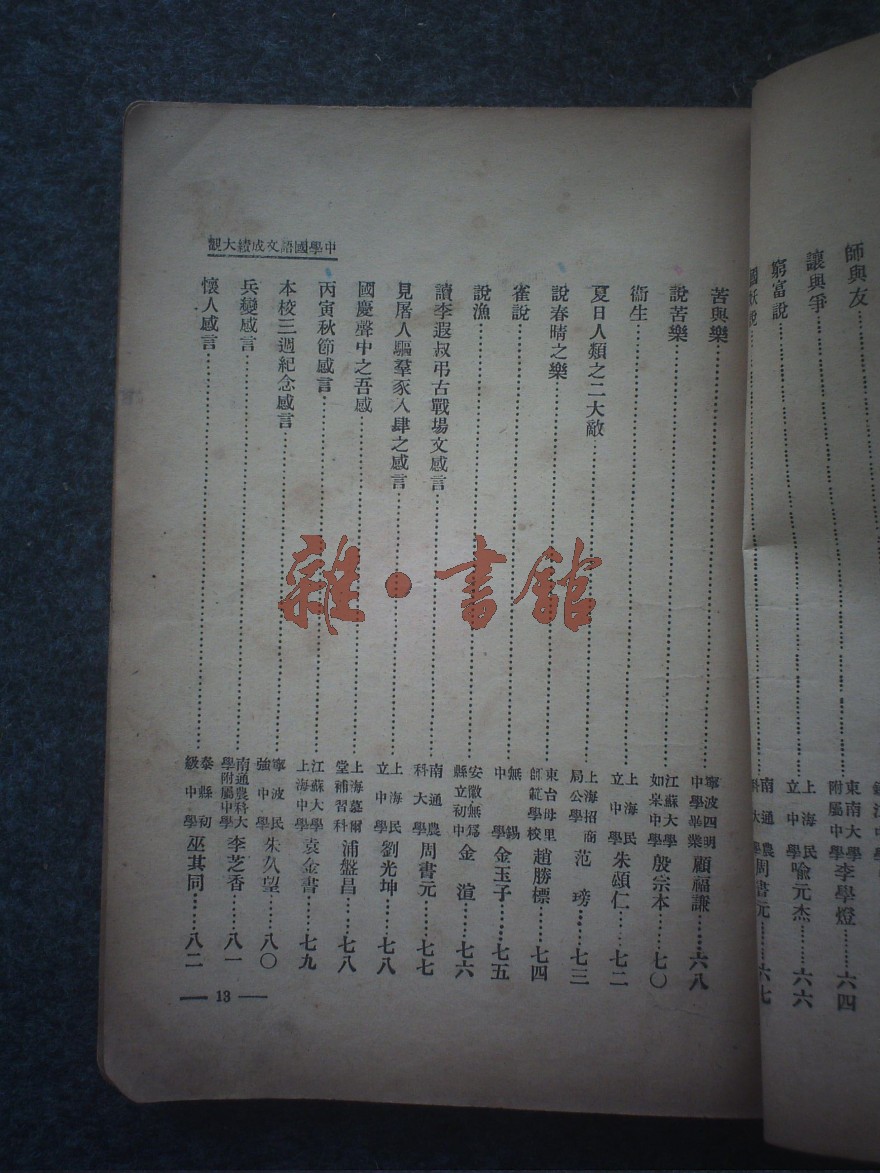 師與友……東南大學附屬中學 李學燈……六四
讓與爭……上海民立中學 喻元杰……六六
窮富說……南通農科大學 周書元……六七
中學國語文成績大觀
苦與樂……寧波四明中學畢業 顧福謙……六八
說苦樂……江蘇大學如杲中學 殷宗本……七〇
衞生……上海民立中學 朱頌仁……七二
夏日人類之二大敵……上海招商局公學 范塝……七三
說春晴之樂……東台母里師範學校 趙勝標……七四
雀說……無錫中學 金玉子……七五
說漁……安徽無爲縣立初中 金渲……七六
讀李遐叔弔古戰場文感言……南通農科大學 周書元……七七
見屠人驅羣豕入肆之感言……上海民立中學 劉光坤……七八
國慶聲中之吾感……上海墓爾堂補習科 浦盤昌……七八
丙寅秋節感言……江蘇大學上海中學 袁金書……七九
本校三週紀念感言……寧波民強中學 朱久望……八〇
兵變感言……南通農科大學附屬中學 李芝香……八一
懷人感言……泰縣初級中學 巫其同……八二
— 13 —
雜·書館